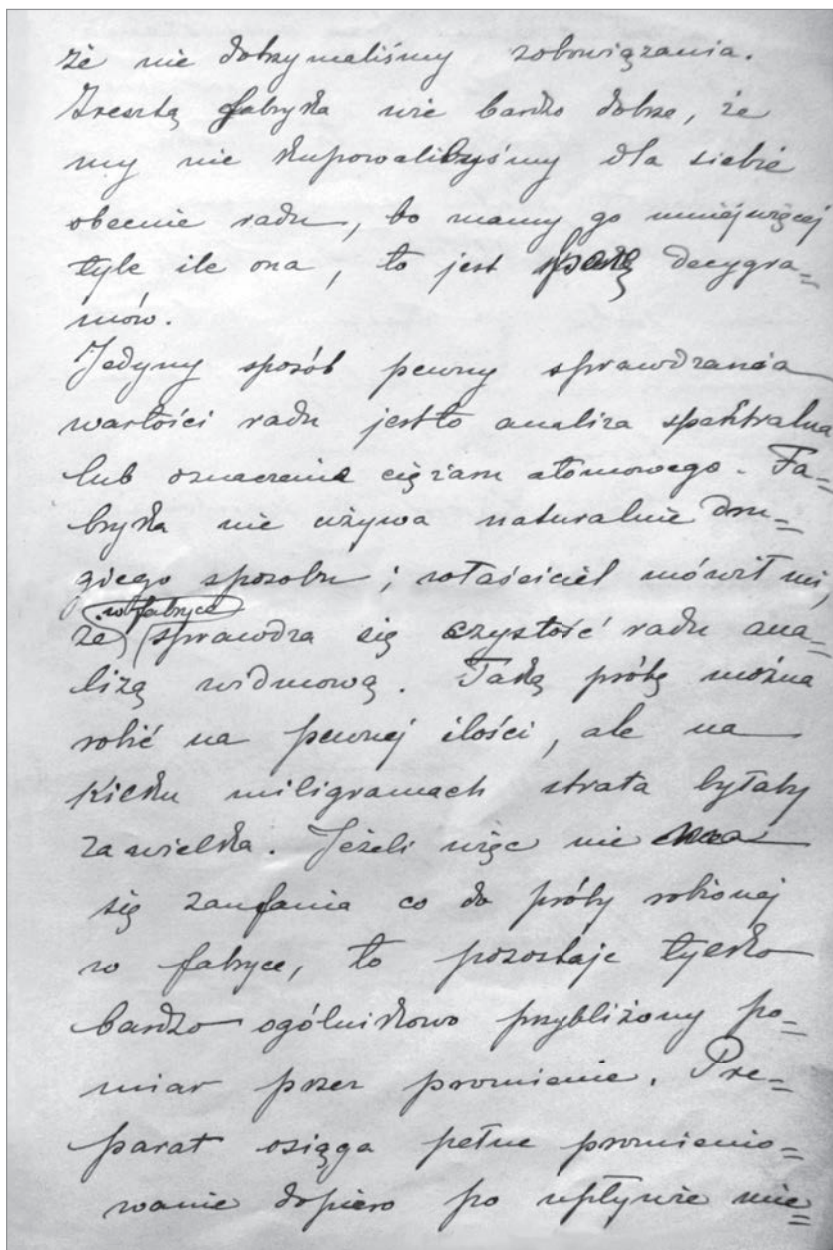 że nie dotrzymaliśmy zobowiązania.
Zresztą fabryka wie bardzo dobrze, że
my nie kupowalibyśmy dla siebie
obecnie radu, bo mamy go mniej więcej
tyle ile ona, to jest parę decygra=
mów.
Jedyny sposób pewny sprawdzania
wartości radu jest to analiza spektralna
lub oznaczenie ciężaru atomowego. Fa=
bryka nie używa naturalnie dru=
giego sposobu; właściciel mówił mi,
w fabryce
że sprawdza się czystość radu ana=
lizą widmową. Taką próbę można
robić na pewnej ilości, ale na
kilku miligramach strata byłaby
za wielka. Jeżeli więc nie ma
się zaufania co do próby robionej
w fabryce, to pozostaje tylko
bardzo ogólnikowo przybliżony po=
miar przez promienie. Pre=
parat osiąga pełne promienio=
wanie dopiero po upływie mie=